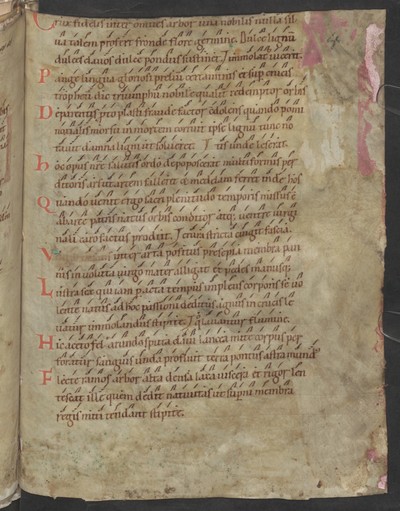 Crux fidelis inter omnes arbor una nobilis nulla sil
ua talem profert fronde flore germine. Dulce lignũ
dulces clauos dulce pondus sustinet. Inmolat uicerit.
Pange lingua gloriosi preliũ certaminis et sup crucis
tropheũ dic triumphũ nobile qualit redemptor orbis
De parentis protoplasti fraude factor cdolens quando pomi
morsu in mortem corruit ipse lignũ tunc no
tauit damna ligni ut solueret.
hoc opus nrę salutis ordo depoposcerat multiformis per
ditoris arte ut artem falleret & medelam ferret inde hos
Quando uenit ergo sacri plenitudo temporis missus ẽ
abarce patris natus orbis conditor atq; uentre uirgi
nali caro factus prodiit.
inter arta positus presepia membra pan
nis inuoluta uirgo mater alligat et pedes manusq;
Lustra sex qui iam peracta tempus implens corporis se uo
lente natus ad hoc passioni deditus agnus in crucis le
uatur immolandus stipite.
Hic acetũ fel arundo sputa claui lancea mite corpus per
foratur sanguis unda profluit terra pontus astra mund
Flecte ramos arbor alta densa laxa uiscera et rigor len
tescat ille quem dedit natiuitas ut supni membra
regis miti tendant stipite.